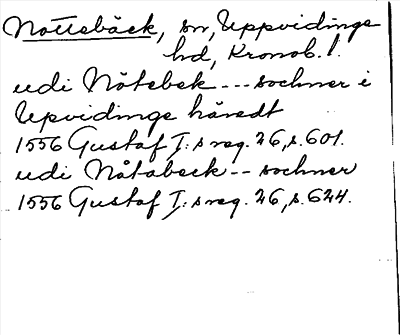 Nottebäck, sn, Uppvidinge
hd, Kronob. l.
udi Nötebek --- sochner i
Upvidinge häredt
1556 Gustaf I:s reg. 26, s. 601.
udi Nåtabeck -- sochner
1556 Gustaf I:s reg. 26, s. 624.